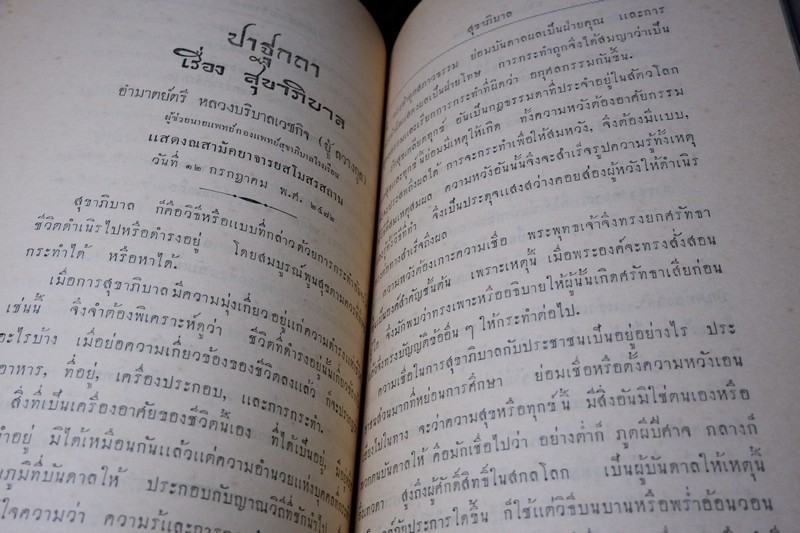 ปาฐกถา
เรื่อง สุขาภิบาล
อำมาตย์ตรี หลวงบริบาลเวชกิจ
ผู้ช่วยนายแพทย์กองแพทย์สุขาภิบาลโรงเรียน
แสดงณสามัคยาจารยสโมสรสถาน
วันที่ ๑๒ กรกฎาคม พ.ศ. ๒๔๗๒
สุขาภิบาล ก็คือวิธีหรือแบบที่กล่าวด้วยการกระทำ
ชีวิตดำเนิรไปหรือดำรงอยู่ โดยสมบูรณ์พูนสุขตามควร
กระทำได้ หรือหาได้.
เมื่อการสุขาภิบาลมีความมุ่งเกี่ยวอยู่แก่ความดำรง
เช่นนี้ จึงจำต้องพิเคราะห์ดูว่า ชีวิตที่ดำรงอยู่นั้น
อะไรบ้าง เมื่อย่อความเกี่ยวข้องของชีวิตลงแล้ว ก็จะ
อาหาร, ที่อยู่, เครื่องประกอบ, และการกระทำ.
สิ่งที่เป็นเครื่องอาศัยของชีวิตนี้เอง ที่ได้เป็นอยู่,
อยู่ มิได้เหมือนกันแล้วแต่ความอำนวยแห่งบุคคล
ภูมิที่บันดาลให้ ประกอบกับญาณวิถีที่ชักนำไป
ใจความว่า ความรู้และการ
สุขาภิบาล
ย่อมบันดาลผลเป็นฝ่ายคุณ และการ
แสดงผลเป็นฝ่ายโทษ การกระทำถูกจึงได้สมญาว่าเป็น
และเรียกการกระทำที่ผิดว่า อกุศลกรรมกันขึ้น.
อันเป็นกฎธรรมดาที่ประจำอยู่ในสัตวโลก
นั้นย่อมมีเหตุให้เกิด ทั้งความหวังต้องอาศัยกรรม
ถึงผลได้ การจะกระทำเพื่อให้สมหวัง, จึงต้องมีแบบ,
ความหวังอันนั้นจึงจะสำเร็จรูปความรู้ทั้งเหตุ
ที่ทำ จึงเป็นประดุจแสงสว่างคอยส่องผู้หวังให้ดำเนิร
สำเร็จถึงผล
ความหวังต้องเกาะความเชื่อ พระพุทธเจ้าจึงทรงยกศรัทธา
สำคัญขั้นต้น เพราะเหตุนี้ เมื่อพระองค์จะทรงสั่งสอน
จึงมักพบว่าทรงเพาะหรืออธิบายให้ผู้นั้นเกิดศรัทธาเสียก่อน
จึงทรงบัญญัติข้ออื่น ๆ ให้กระทำต่อไป.
ความเชื่อในการสุขาภิบาลกับประชาชนเป็นอยู่อย่างไร ประ
ส่วนมากที่หย่อนการศึกษา ย่อมเชื่อหรือตั้งความหวังเอน
เอียงไปในทาง จะว่าความสุขหรือทุกข์นี้ มีสิ่งอันมิใช่ตนเองหรือ
พวกตนบันดาลให้ คือมักเชื่อไปว่า อย่างต่ำก็ ภูตผีปีศาจ กลางก็
เทวดา สูงถึงผู้ศักดิ์สิทธิ์ในสกลโลก เป็นผู้บันดาลให้เหตุนี้
ประการใดขึ้น ก็ใช้แต่วิธีบนบานหรือพร่ำอ้อนวอน